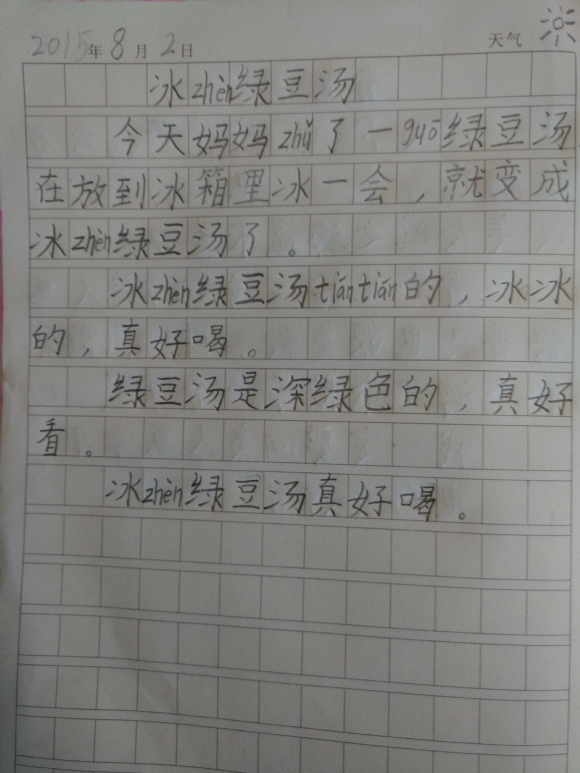 2015年8月2日 天气
冰zhèn绿豆汤
今天妈妈zhǔ了一guō绿豆汤
在放到冰箱里冰一会,就变成
冰zhèn绿豆汤了。
冰zhèn绿豆汤tiántián的,冰冰
的,真好喝。
绿豆汤是深绿色的,真好
看。
冰zhèn绿豆汤真好喝。